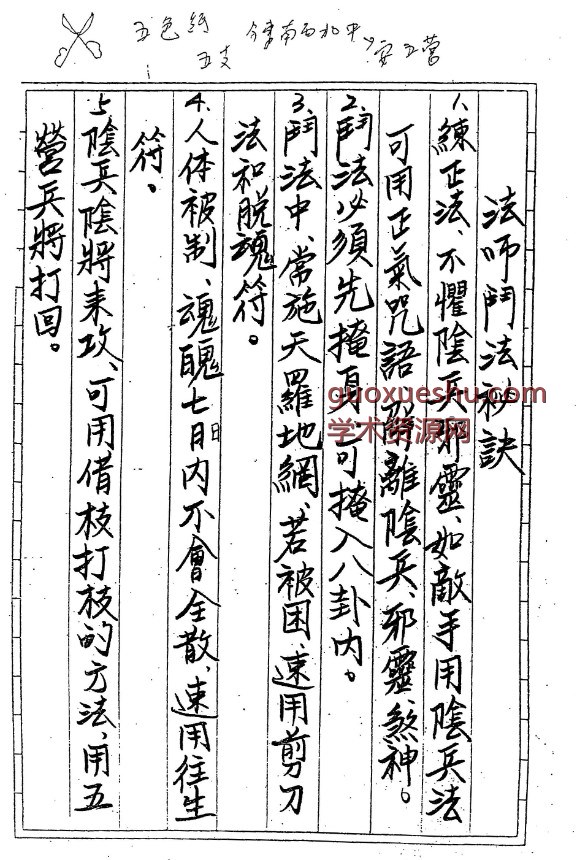 五色紙
五支
東南西北中
安五營
法師鬥法秘訣
1、練正法、不懼陰兵邪靈、如敵手用陰兵法
可用正氣咒語解離陰兵、邪靈、煞神。
2、鬥法必須先掩身、可掩入八卦內。
3、鬥法中、常施天羅地網、若被困、速用剪刀
法和脫魂符。
4、人体被制、魂魄七日內不會全散、速用往生
符。
5、陰兵陰將来攻、可用借枝打枝的方法、用五
營兵將打回。
guoxueshu.com
学术资源网